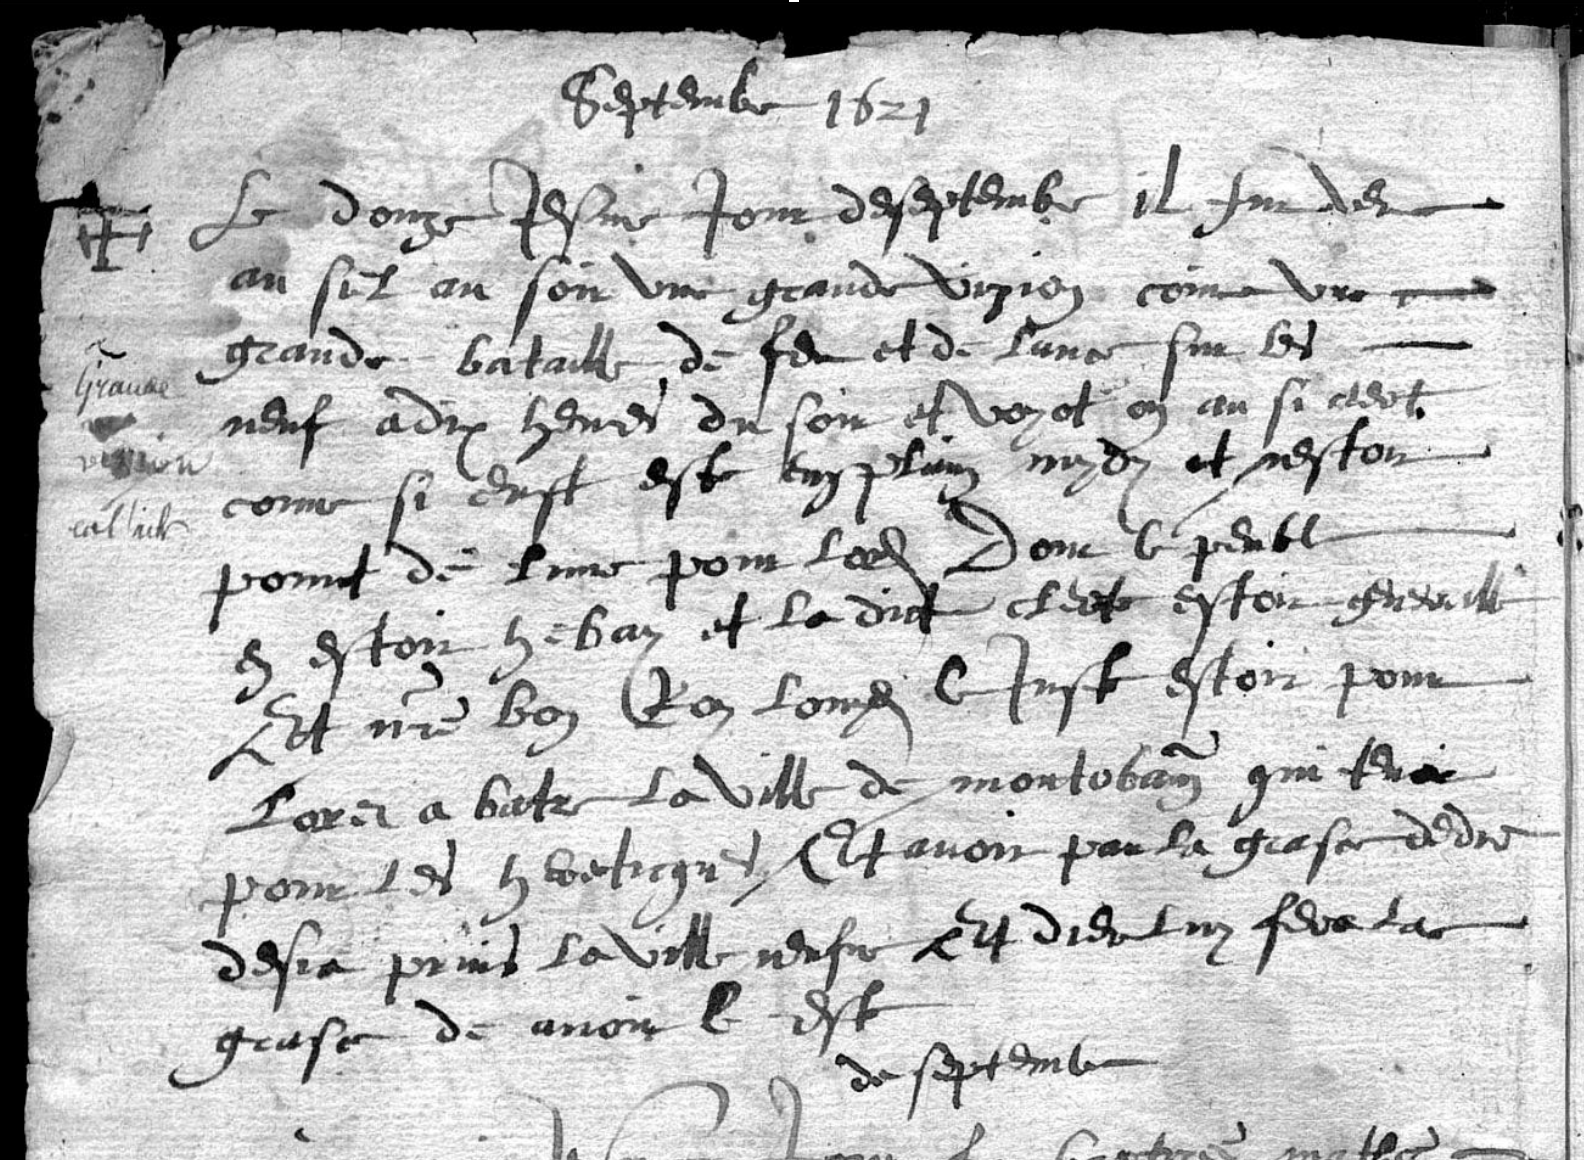 Septembre 1621
Le douzeiesme Jour deseptembre il fut veu
au siel au soir une grande vizion come une
grande bataille de feu et de lance sur les
neuf a dix heures du soir et voyot on au si clert
come si ceust este en plain mydy et nestoit
point de lune pour lors Dont le peuble
en estoit hebay et la dicte clerte estoit
Et nre bon Roy Louys le Juste estoit pour
Lores a batre la ville de montobain qui tenoit
pour les hereticques Et avoit par la grase de die
desia prins la ville neufve Et dieu luy fera la
grase de avoir le est
de septembre
Grande
vizion